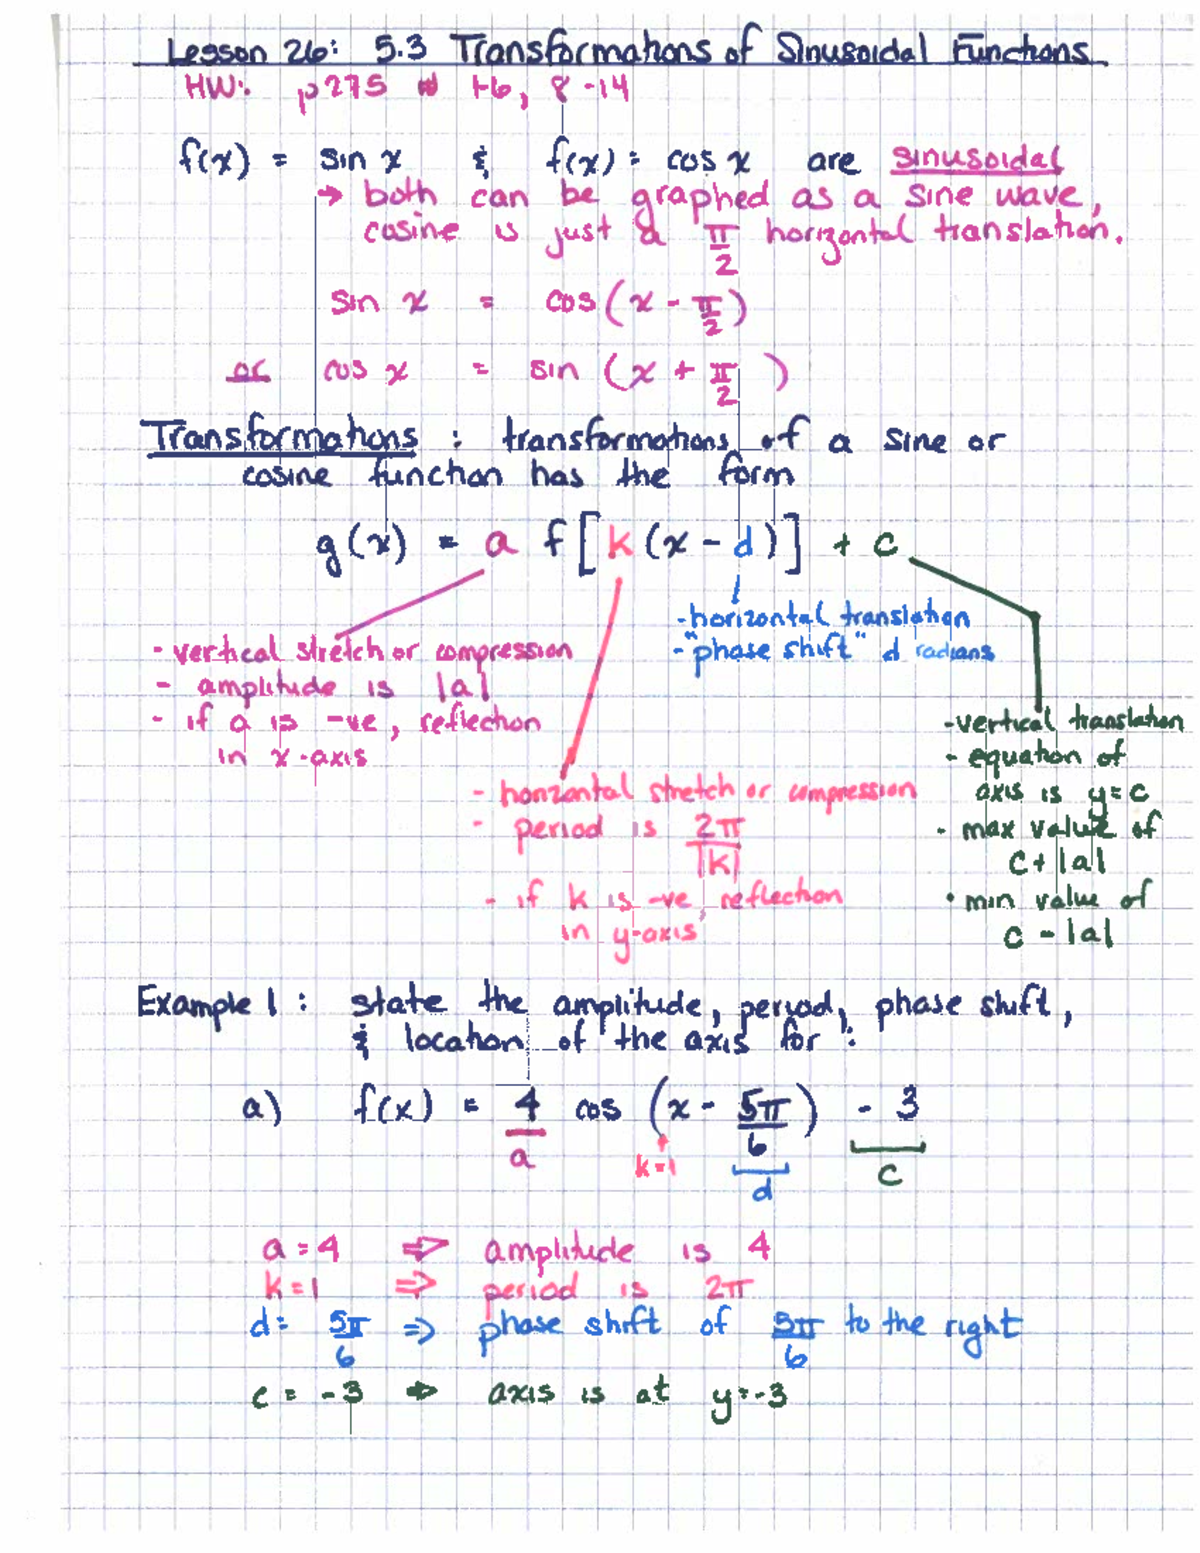 Lesson 26: 5.3 Transformations of Sinusoidal Functions
HW: p275 # 1-6, 8-14
f(x) = sin x & f(x) = cos x are sinusoidal
→ both can be graphed as a sine wave,
cosine is just a π/2 horizontal translation.
sin x = cos(x - π/2)
or cos x = sin (x + π/2)
Transformations : transformations of a sine or
cosine function has the form
g(x) = a f[k(x - d)] + c
- horizontal translation
- "phase shift" d radians
- vertical stretch or compression
- amplitude is |a|
- if a is -ve, reflection
in x-axis
- vertical translation
- equation of
axis is y=c
- max value of
c + |a|
- min value of
c - |a|
- horizontal stretch or compression
- period is 2π/|k|
- if k is -ve, reflection
in y-axis
Example 1 : state the amplitude, period, phase shift,
& location of the axis for :
a) f(x) = 4 cos (x - 5π/6) - 3
a k=1 d c
a = 4 ⇒ amplitude is 4
k = 1 ⇒ period is 2π
d = 5π/6 ⇒ phase shift of 5π/6 to the right
c = -3 ⇒ axis is at y=-3